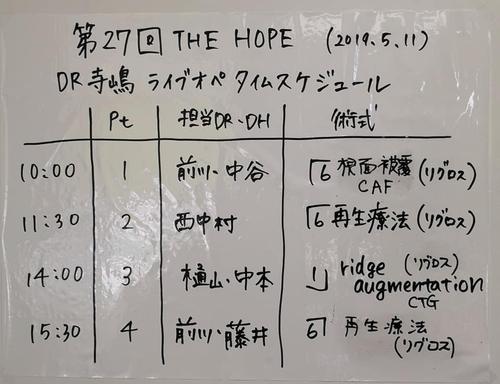 第27回 THE HOPE (2019.5.11)
DR寺嶋 ライブオペ タイムスケジュール
Pt 担当DR・DH 術式
10:00 1 前川・中谷 6 根面被覆 (リグロス)
CAF
11:30 2 西中村 6 再生療法 (リグロス)
14:00 3 樋山・中本 1 ridge (リグロス)
augmentation
CTG
15:30 4 前川・藤井 6 再生療法
(リグロス)